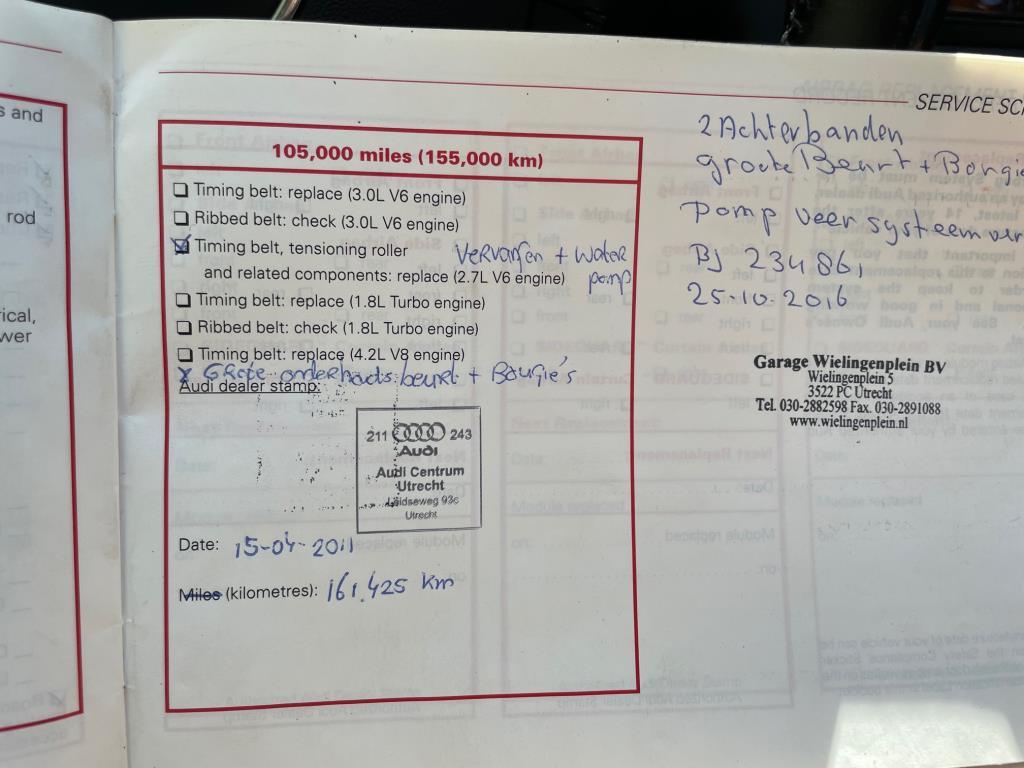 s and
rod
rical,
wer
SERVICE SC
105,000 miles (155,000 km)
Timing belt: replace (3.0L V6 engine)
Ribbed belt: check (3.0L V6 engine)
Timing belt, tensioning roller
and related components: replace (2.7L V6 engine)
Vervangen + water
pomp
Timing belt: replace (1.8L Turbo engine)
Ribbed belt: check (1.8L Turbo engine)
Timing belt: replace (4.2L V8 engine)
X Grote onderhouts beurt + Bougie's
Audi dealer stamp:
211 243
Audi
Audi Centrum
Utrecht
Leidseweg 93c
Utrecht
Date: 15-04-2011
Miles (kilometres): 161.425 km
2 Achterbanden
groote Beurt + Borgie
Pomp veersysteem ver
Bij 234 861
25-10-2016
Garage Wielingenplein BV
Wielingenplein 5
3522 PC Utrecht
Tel. 030-2882598 Fax. 030-2891088
www.wielingenplein.nl